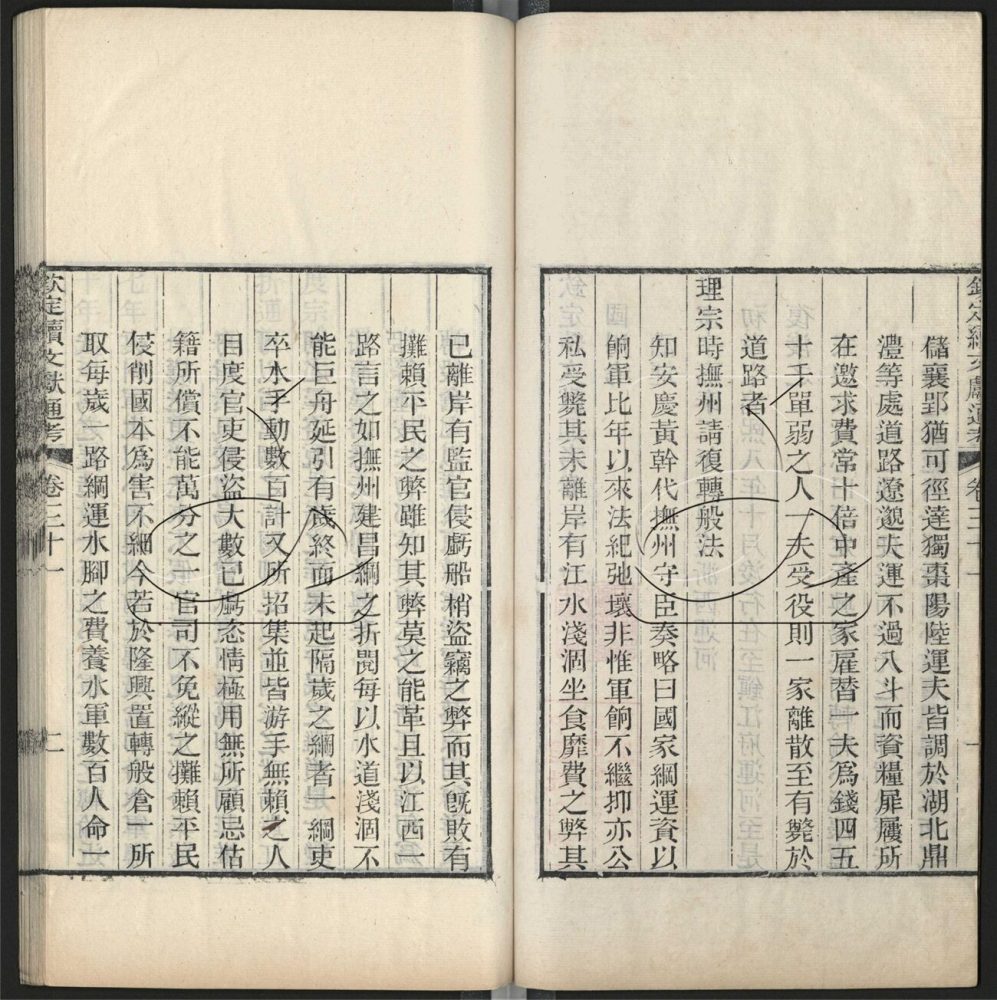 欽定續文獻通考 卷三十一 一
儲襄郢猶可徑達獨棗陽陸運夫皆調於湖北鼎
澧等處道路遼邈夫運不過八斗而資糧屝屨所
在邀求費常十倍中產之家雇替一夫爲錢四五
十千單弱之人一夫受役則一家離散至有斃於
道路者
理宗時撫州請復轉般法
知安慶黃幹代撫州守臣奏略曰國家綱運資以
餉軍比年以來法紀弛壞非惟軍餉不繼抑亦公
私受斃其未離岸有江水淺涸坐食靡費之弊其
已離岸有監官侵虧船梢盜竊之弊而其旣敗有
攤賴平民之弊雖知其弊莫之能革且以江西一
路言之如撫州建昌綱之折閱每以水道淺涸不
能巨舟延引有歲終而未起隔歲之綱者一綱吏
卒水手動數百計又所招集並皆游手無賴之人
目度官吏侵盜大數已虧恣情極用無所顧忌估
籍所償不能萬分之一官司不免縱之攤賴平民
侵削國本爲害不細今若於隆興置轉般倉一所
取每歲一路綱運水腳之費養水軍數百人命一
欽定續文獻通考 卷三十一 二